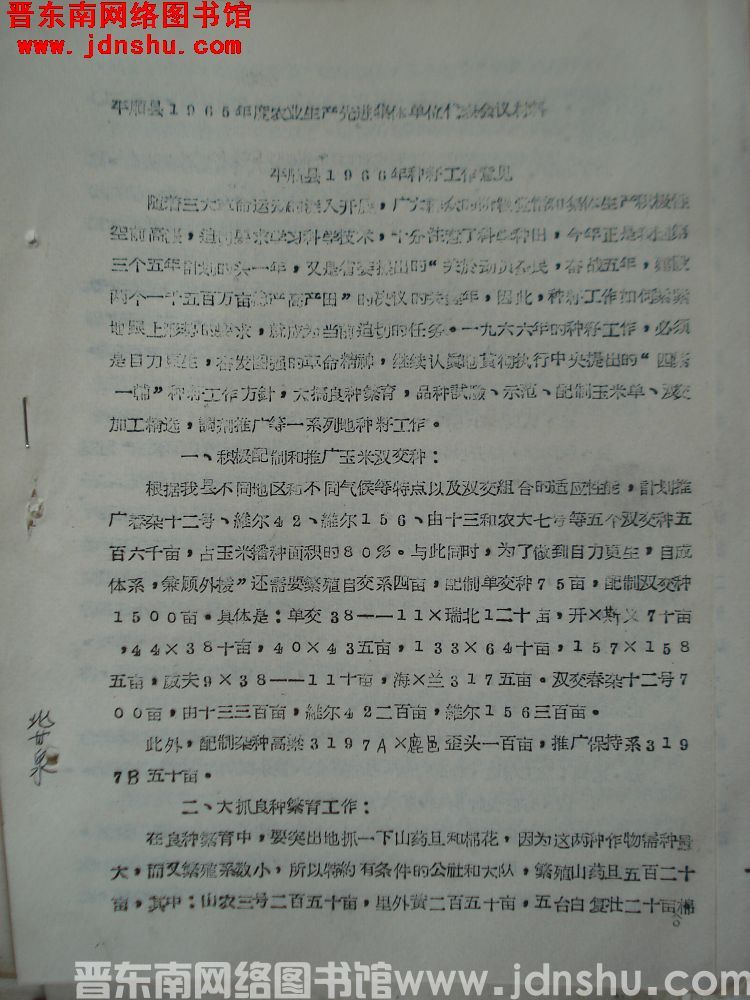 晋东南网络图书馆
www.jdnshu.com
平顺县1965年度农业生产先进集体单位代表会议材料
平顺县1966年种籽工作意见
随着三大革命运动的深入开展,广大群众的阶级觉悟和集体生产积极性
空前高涨,迫切要求学习科学技术,十分普遍了科学种田,今年正是我国第
三个五年计划的头一年,又是省委提出的“关于动员全民,奋战五年,建设
两个一千五百万亩稳产高产田”的决议的关键年,因此,种籽工作如何紧紧
地跟上形势的要求,就成为当前迫切的任务。一九六六年的种籽工作,必须
是自力更生,奋发图强的革命精神,继续认真地贯彻执行中央提出的“四自
一辅”种籽工作方針,大搞良种繁育,品种試验、示范、配制玉米单、双交
加工精选,調剂推广等一系列地种籽工作。
一、积极配制和推广玉米双交种:
根据我县不同地区和不同气候等特点以及双交組合的适应性能,計划推
广春杂十二号、維尔42、維尔156、由十三和农大七号等五个双交种五
百六千亩,占玉米播种面积的80%。与此同时,为了做到自力更生,自成
体系,兼顾外援”还需要繁殖自交系四亩,配制单交种75亩,配制双交种
1500亩。具体是:单交38——11×瑞北1二十亩,开×斯义7十亩
,44×38十亩,40×43五亩,133×64十亩,157×158
五亩,反夫9×38——11十亩,海×兰317五亩。双交春杂十二号7
00亩,由十三三百亩,維尔42二百亩,維尔156三百亩。
此外,配制杂种高粱3197A×鹿邑歪头一百亩,推广保持系319
7B五十亩。
二、大抓良种繁育工作:
在良种繁育中,要突出地抓一下山药旦和棉花,因为这两种作物需种量
大,而又繁殖系数小,所以特約有条件的公社和大队,繁殖山药旦五百二十
亩,其中:山农三号二百五十亩,里外黄二百五十亩,五台白复壮二十亩。棉
北甘泉
晋东南网络图书馆www.jdnshu.com